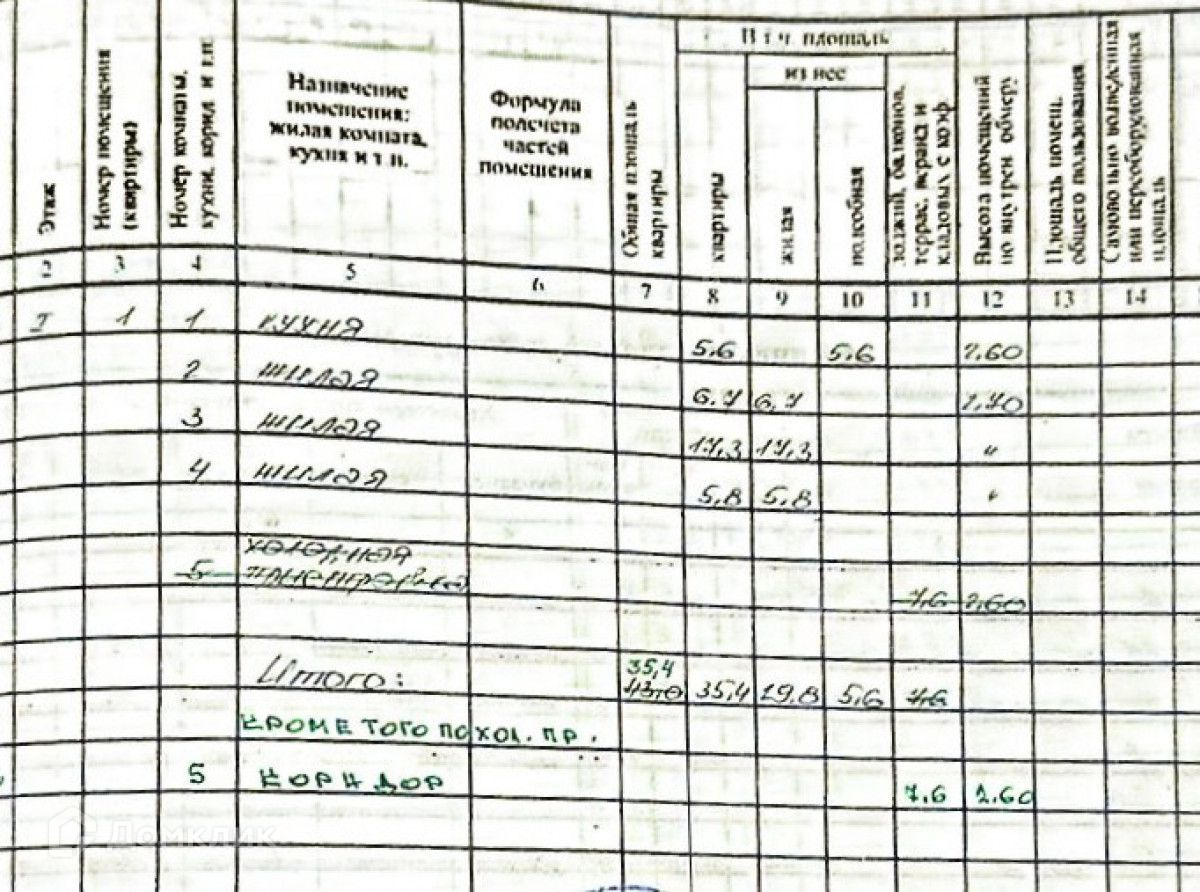 Этаж
Номер помещения (квартиры)
Номер комнаты, кухни, корид. и т.п.
Назначение помещения: жилая комната, кухня и т.п.
Формула подсчета частей помещения
Общая площадь квартиры
В т.ч. площадь
квартиры
из нее
жилая
подсобная
лоджий, балконов, террас, веранд и кладовых с коэф.
Высота помещений по внутрен. обмеру
Площадь помещ. общего пользования
Самовольно возведенная или переоборудованная площадь
2 3 4 5 6 7 8 9 10 11 12 13 14
I 1 1 кухня 5,6 5,6 2.60
2 жилая 6.7 6,7 2,70
3 жилая 17,3 17,3 "
4 жилая 5,8 5,8 "
холодная
5 7,6 2,60
Итого: 35,4 43,0 35,4 29.8 5,6 7,6
КРОМЕ ТОГО ПО ХОЛ. ПР.
5 КОРИДОР 7.6 2.60
Домклик